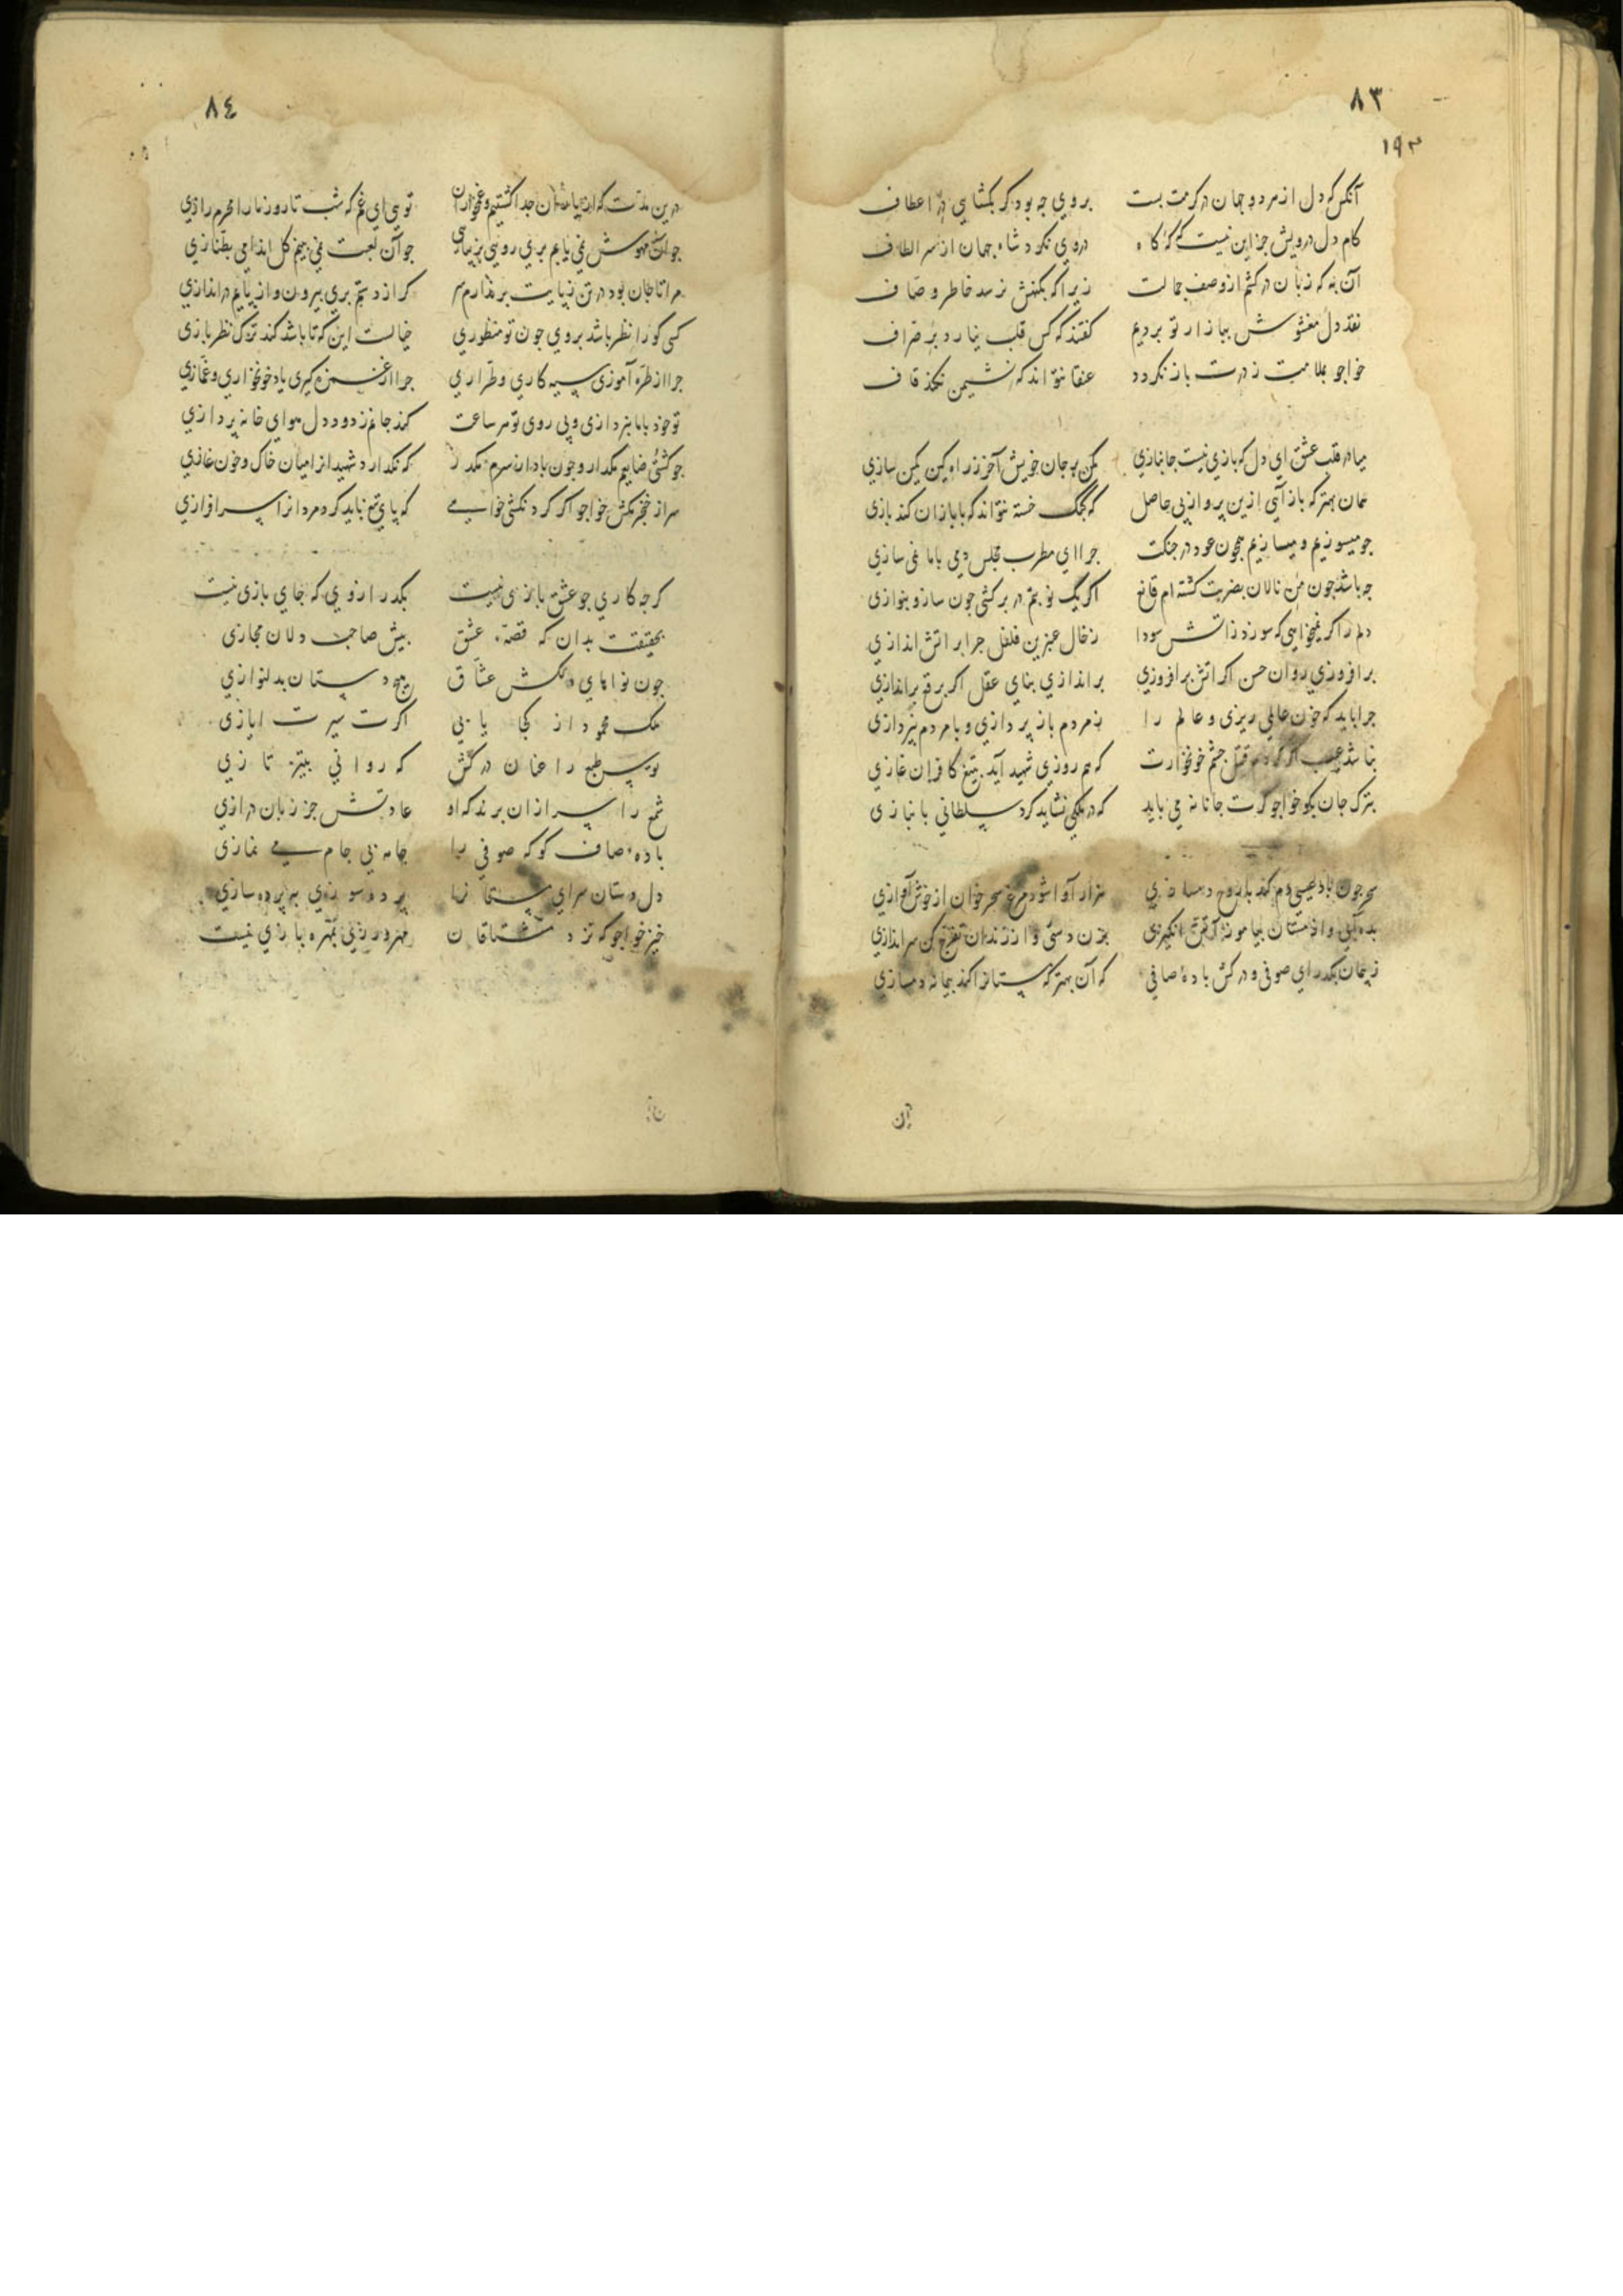 ٨٣
١٩٣
آنکس که دل از هر دو جهان در کرمت بست بروی چه بود گر بگشایی در اعطاف
کام دل درویش جز این نیست که گه گاه در وی نگرد شاه جهان از سر الطاف
آن به که زبان در کشم از وصف جمالت زیرا که بکنهش نرسد خاطر وصاف
نقد دل مغشوش ببازار تو بردیم گفتند که کس قلب نیارد بر صراف
خواجو بملامت ز درت باز نگردد عنقا نتواند که نشیمن نکند قاف
میا در قلب عشق ای دل که بازی نیست جانبازی مکن بر جان خویش آخر ز راه کین کمین سازی
همان بهتر که باز آیی ازین پرواز بی حاصل که کبک خسته نتواند که با بازان کند بازی
جو میسوزیم و میسازیم همچون عود در جنکت جرا ای مطرب مجلس دمی باما نمی سازی
جه باشد جون من نالان بضربت کشته ام قانع اکر یک نوبتم در بر کشی جون ساز و بنوازی
دلم را کر نمیخواهی که سوزد زاتش سودا ز خال عنبرین فلفل جرا بر اتش اندازی
بر افروزی روان حسن اکر اتش بر افروزی بر اندازی بنای عقل اکر برقع براندازی
جرا باید که خون عالمی ریزی و عالم را ز مردم باز پردازی و با مردم نپردازی
نباشد عیب اکر کردم قتیل جشم خونخوارت که هم روزی شهید آید بتیغ کافران غازی
بترک جان بکو خواجو کرت جانانه می باید که در ملکی نشاید کرد سلطانی بانبازی
سحر جون باد عیسی دم کند با روح دمسازی هزار آوا شود مرغ سحر خوان از خوش آوازی
بده آبی و از مستان بیاموز آتش انکیزی بزن دستی و از رندان تفرج کن سراندازی
ز پیمان بکذر ای صوفی و در کش باده صافی که آن بهتر که مستانرا کند پیمانه دمسازی
آن
٨٤
درین مدت که از یاران جدا کشتیم و غمخواران تویی ای غم که شب تا روز ما را محرم رازی
جو آن مهوش نمی یابم بری رویی بزیبایی جو آن لعبت نمی بینم کل اندامی بطنازی
مرا تا جان بود در تن ز پایت بر ندارم سر کر از دستم بری بیرون و از پایم در اندازی
کسی کو را نظر باشد بروی جون تو منظوری خیالست این که تا باشد کند ترک نظر بازی
جرا از طره آموزی سیه کاری و طراری جرا از غمزه کیری یاد خونخواری و غمازی
تو خود با ما نپردازی و بی روی تو هر ساعت کند جانم ز دود دل هوای خانه پردازی
جو کشتی ضایعم مکذار و جون باد از سرم مکذر که نکذارد شهیدانرا میان خاک و خون غازی
سر از خنجر مکش خواجو اکر کردنکشی خواهی که پای تیغ باید کرد مردانرا سرافرازی
کرجه کاری جو عشقبازی نیست بکدر از وی که جای بازی نیست
بحقیقت بدان که قصهٔ عشق پیش صاحب دلان مجازی
جون نواهای دلکش عشاق هیج دستان بدلنوازی
ملک محمود از کجا یابی اکرت سیرت ایازی
توسن طبع را عنان درکش که روانی بتیز تازی
شمع را سر ازان برند که او عادتش جز زبان درازی
باده صاف کو که صوفی را جامه بی جام می نمازی
دل دستان سرای مستانرا پرده سوزی به پرده سازی
خیز خواجو که نزد مشتاقان مهرورزی بمهره بازی نیست